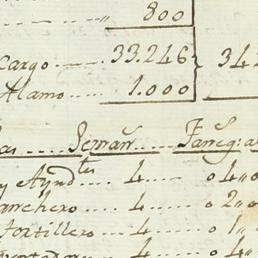 800
Cargo 33.246 342
Alamo 1.000
Seman.s Faneg.as
y Aynd.tes 4 0 4
anchero 4 0 2
ortillero 4 0 1
4 0 4